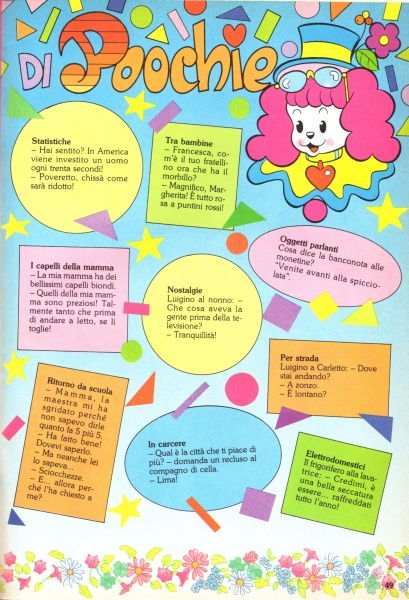 DI Poochie
Statistiche
– Hai sentito? In America
viene investito un uomo
ogni trenta secondi!
– Poveretto, chissà come
sarà ridotto!
Tra bambine
– Francesca, co-
m'è il tuo fratelli-
no ora che ha il
morbillo?
– Magnifico, Mar-
gherita! È tutto ro-
sa a puntini rossi!
I capelli della mamma
– La mia mamma ha dei
bellissimi capelli biondi.
– Quelli della mia mam-
ma sono preziosi! Tal-
mente tanto che prima
di andare a letto, se li
toglie!
Nostalgie
Luigino al nonno: –
Che cosa aveva la
gente prima della te-
levisione?
– Tranquillità!
Oggetti parlanti
Cosa dice la banconota alle
monetine?
"Venite avanti alla spiccio-
lata".
Per strada
Luigino a Carletto: – Dove
stai andando?
– A zonzo.
– È lontano?
Ritorno da scuola
– Mamma, la
maestra mi ha
sgridato perché
non sapevo dirle
quanto fa 5 più 5.
– Ha fatto bene!
Dovevi saperlo.
– Ma neanche lei
lo sapeva...
– Sciocchezze.
– E... allora per-
ché l'ha chiesto a
me?
In carcere
– Qual è la città che ti piace di
più? – domanda un recluso al
compagno di cella.
– Lima!
Elettrodomestici
Il frigorifero alla lava-
trice: – Credimi, è
una bella seccatura
essere... raffreddati
tutto l'anno!
49